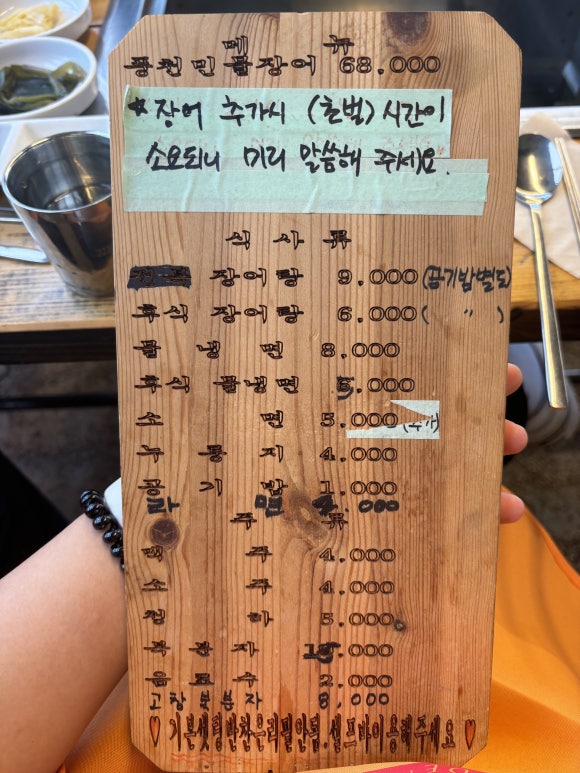 메 뉴
풍천민물장어 68.000
*장어 추가시 (초벌) 시간이
소요되니 미리 말씀해 주세요.
식 사 류
장어탕 9.000 (공기밥별도)
후식 장어탕 6.000 ( " )
물 냉 면 8.000
후식 물냉면 5.000
소 면 5.000
누 룽 지 4.000
공 기 밥 1.000
라 면 .000
주 류
맥 주 4.000
소 주 4.000
청 하 5.000
복 분 자 .000
음 료 수 2.000
고창복분자 8.000
기본셋팅반찬은리필안됨.셀프바이용해주세요